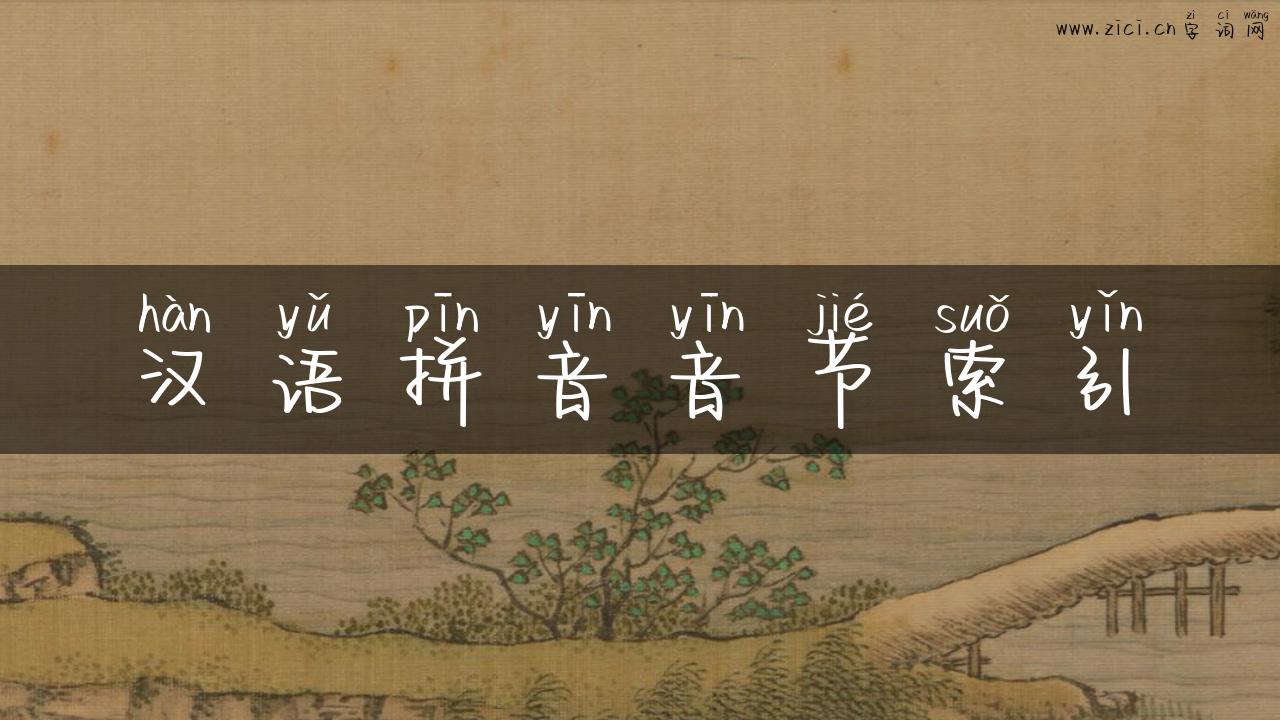 zì cí wǎng
www.zici.cn 字 词 网
hàn yǔ pīn yīn yīn jié suǒ yǐn
汉 语 拼 音 音 节 索 引